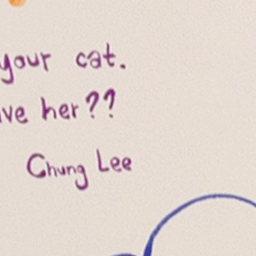 your cat.
ve her??
Chung Lee